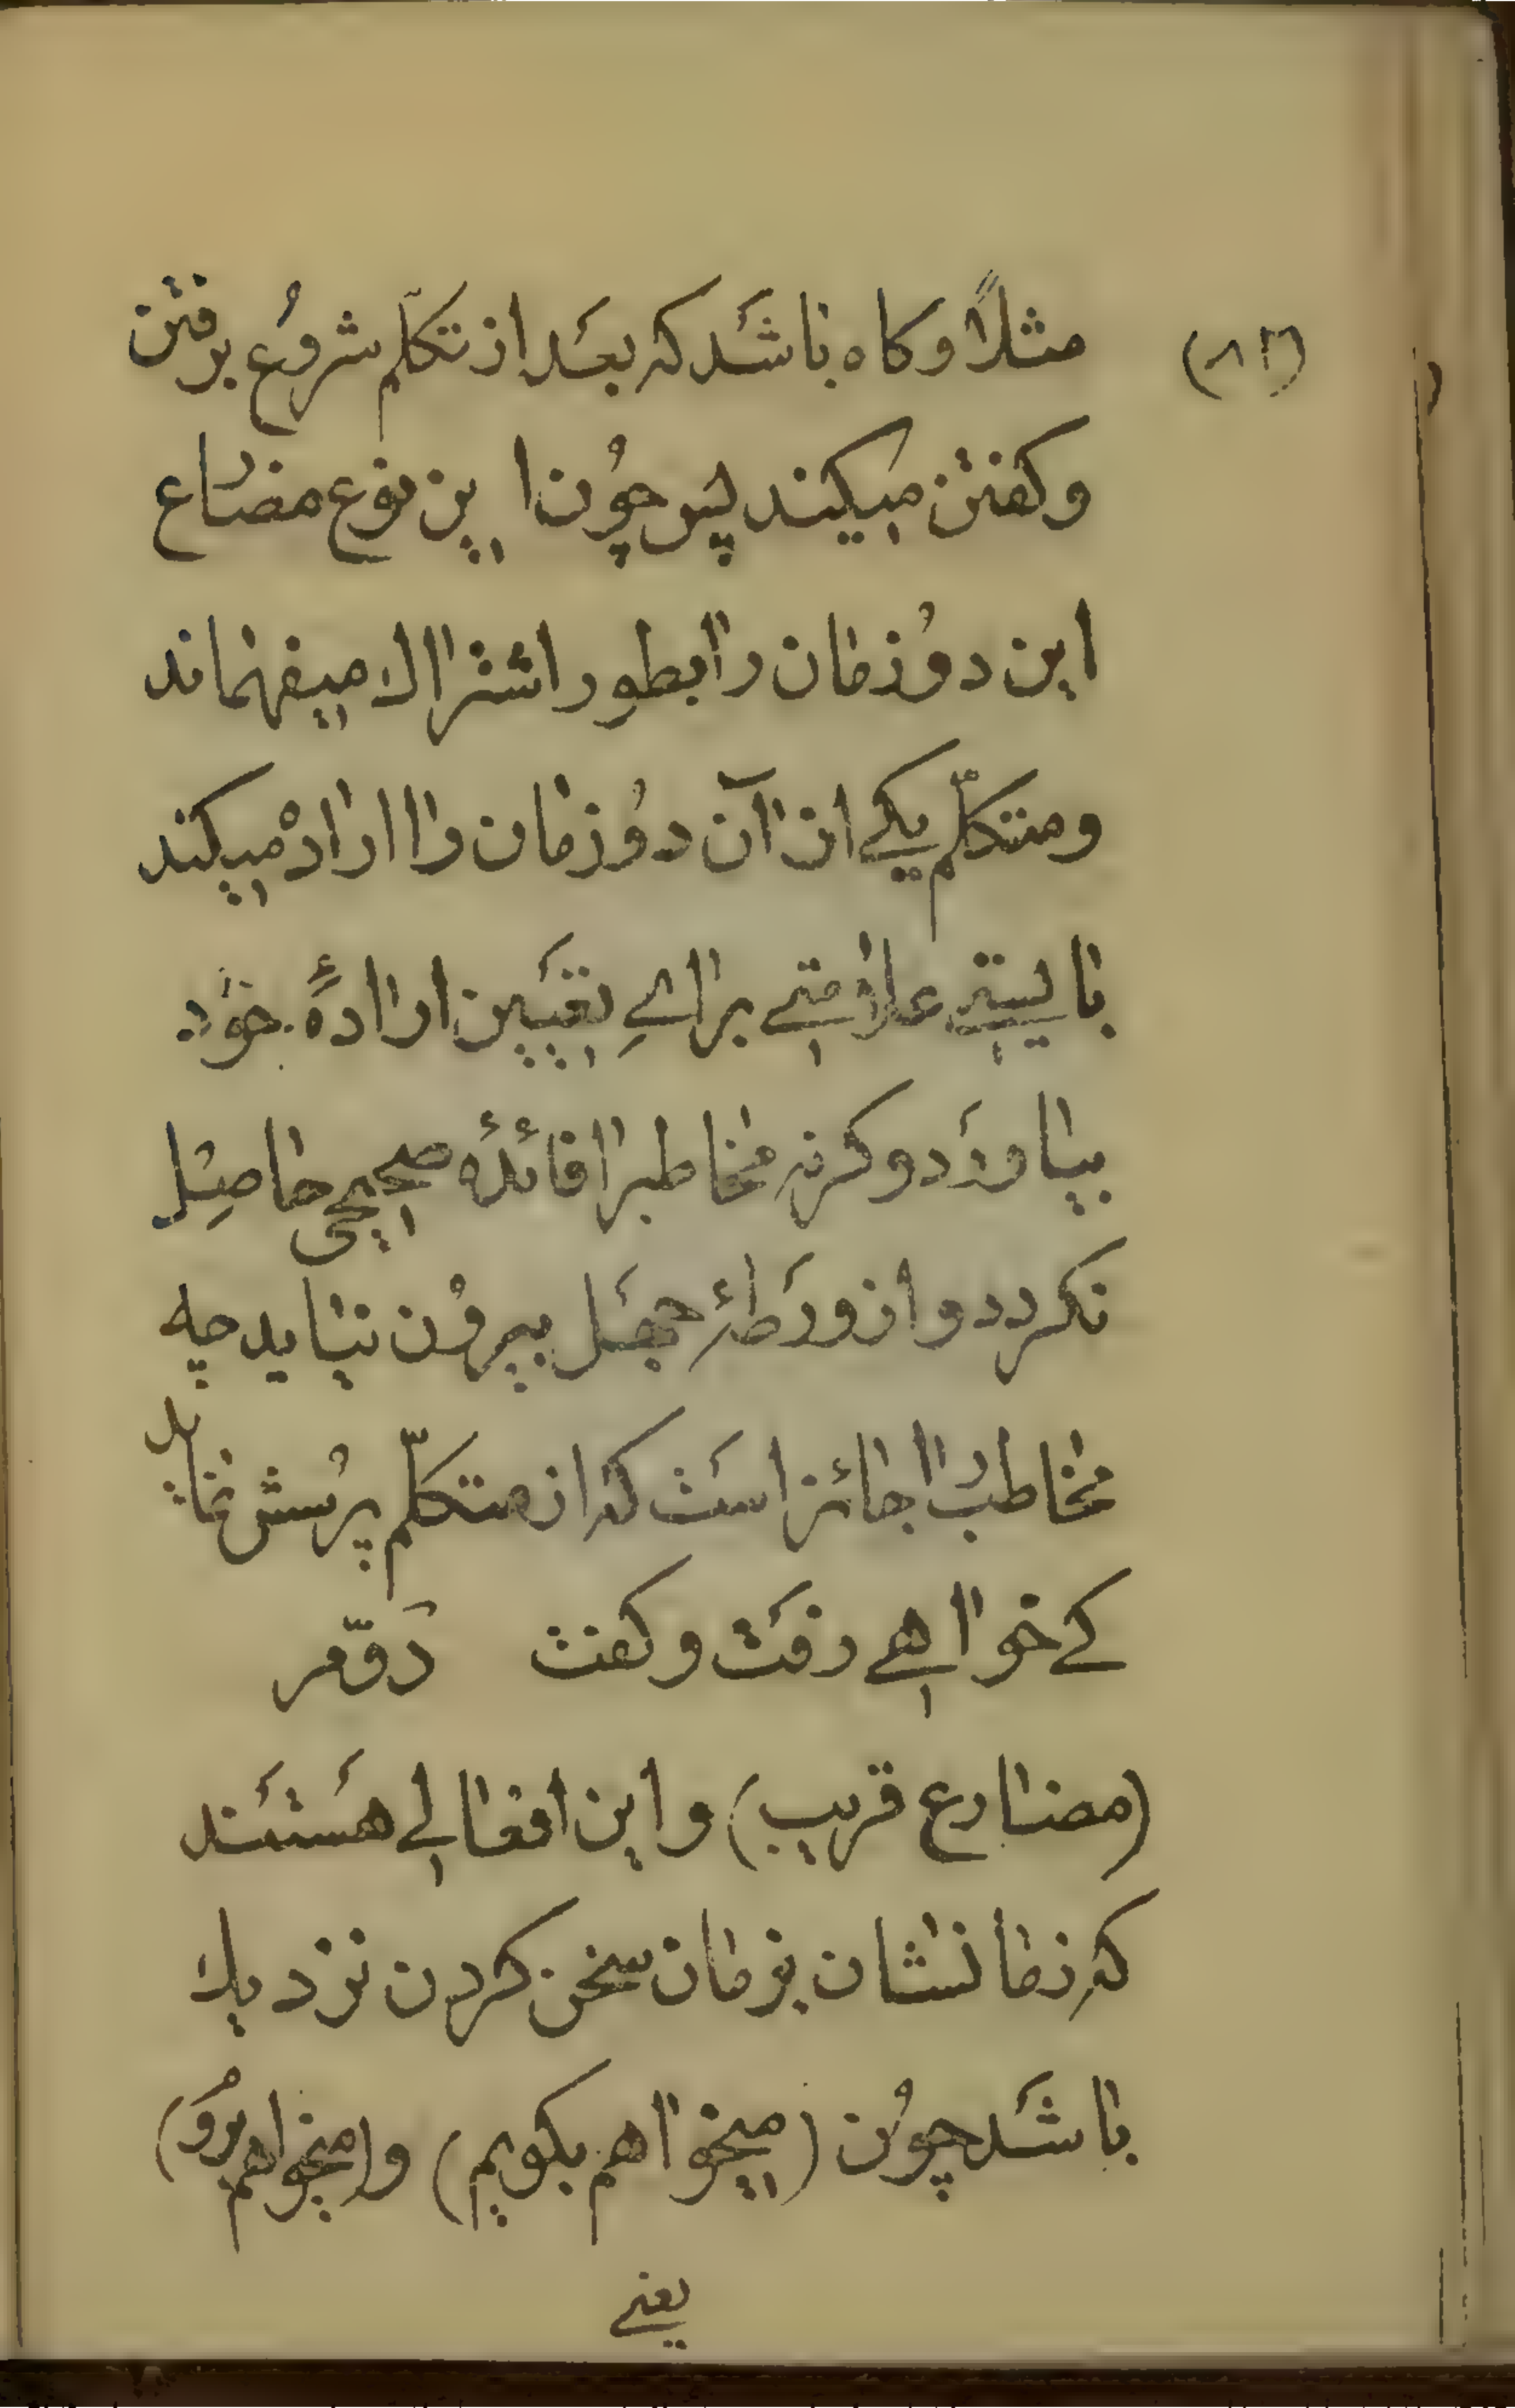 (۸۲)
مثلاً و کاه باشَد که بعَد از تکلّم شروُع برفتن
و کفتن میکند پس چوُن این نوع مضارع
این دوُ زمان را بطورِ اشتراک میفهماند
و متکلّم یکے از آن دوُ زمان را ارادهْ میکند
بایستے علامتے براے تعَیین ارادهٔ خوُد
بیاورَد و کرنه مخاطبرا فائدهٔ صحیحی حاصِل
نکردد و از ورَطهٔ جهَل بیروُن نیاید چه
مخاطب را جائز استَ که از متکلّم پرُسش نماید
کے خواهے رفتَ و کفت دَوّم
(مضارع قریب) و این افعالے هَستَند
که زمانشان بزمان سخن کردن نزدیک
باشَد چوُن (میخواهم بکویم) و (میخواهم برُو)
یعنے